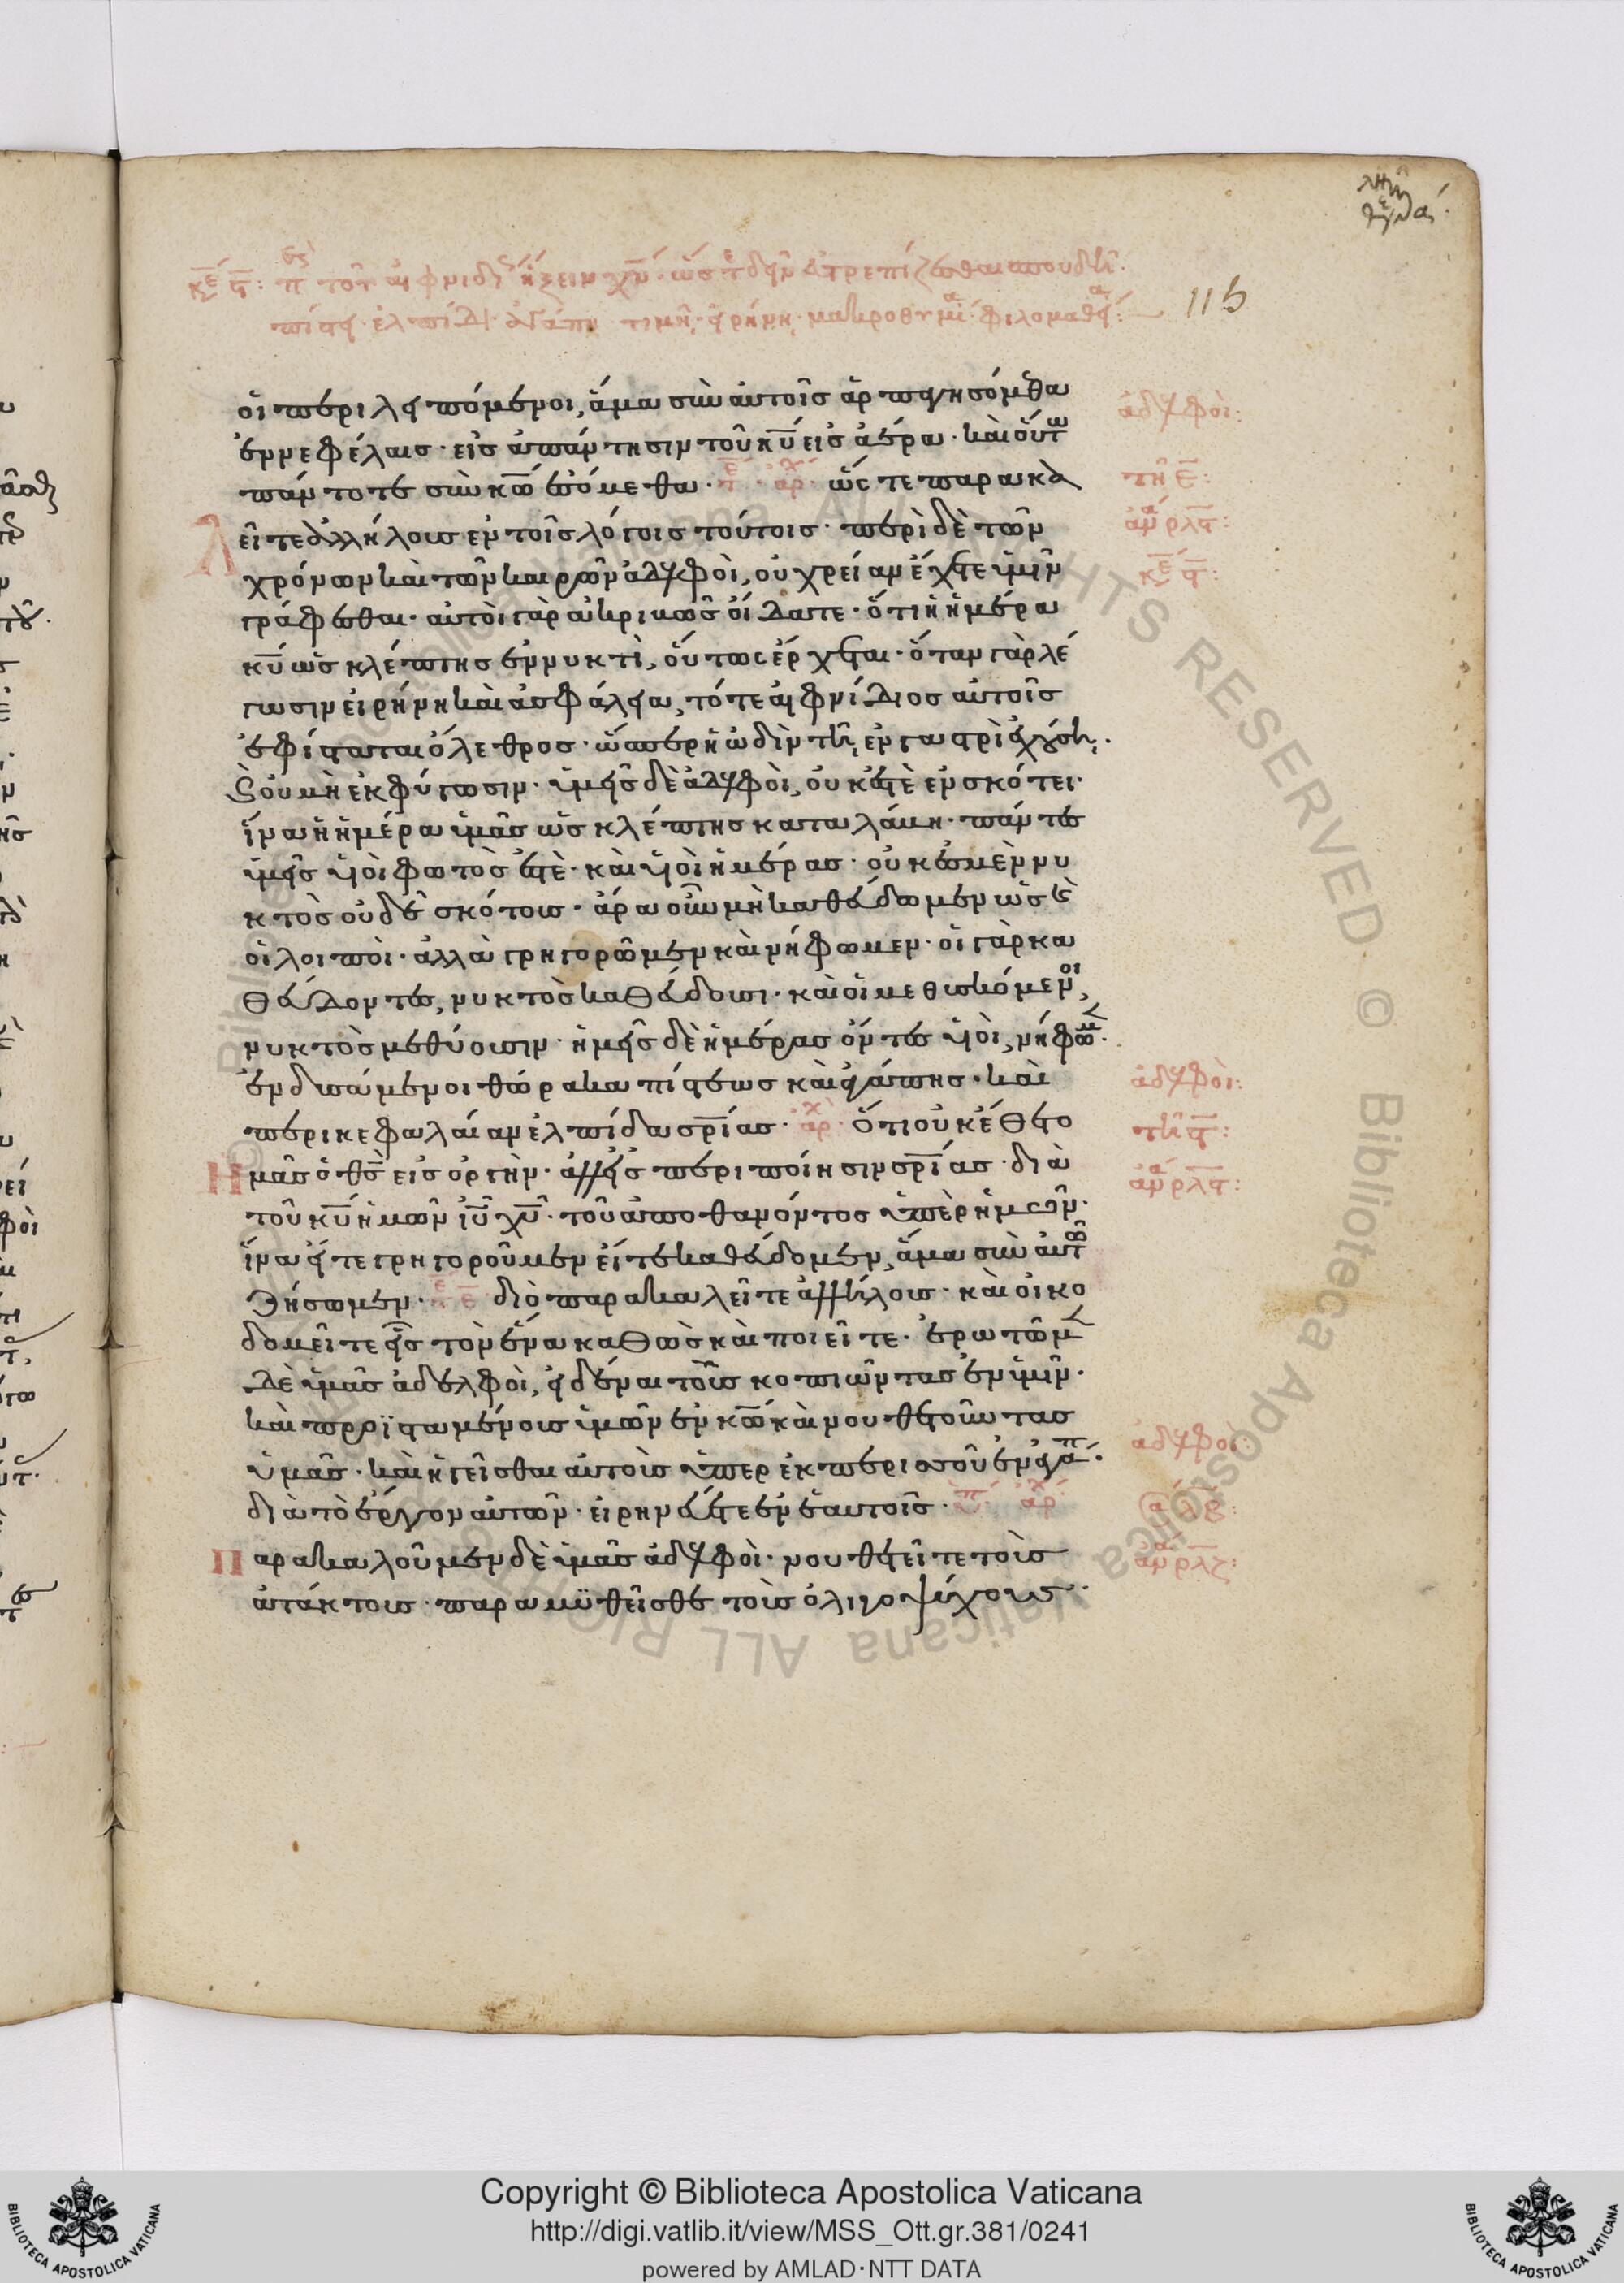 116
οἱ περιλειπόμενοι, ἅμα σὺν αὐτοῖς ἁρπαγησόμεθα
ἐν νεφέλαις· εἰς ἀπάντησιν τοῦ κ̅υ̅ εἰς ἀέρα· καὶ οὕτω
πάντοτε σὺν κ̅ω̅ ἐσόμεθα· τε ἀρχ ὥστε παρακα
λεῖτε ἀλλήλους ἐν τοῖς λόγοις τούτοις· περὶ δὲ τῶν
χρόνων καὶ τῶν καιρῶν ἀδελφοὶ, οὐ χρείαν ἔχετε ὑμῖν
γράφεσθαι· αὐτοὶ γὰρ ἀκριβῶς οἴδατε· ὅτι ἡ ἡμέρα
κ̅υ̅ ὡς κλέπτης ἐν νυκτὶ, οὕτως ἔρχεται· ὅταν γὰρ λέ
γωσιν εἰρήνη καὶ ἀσφάλεια, τότε αἰφνίδιος αὐτοῖς
ἐφίσταται ὄλεθρος· ὥσπερ ἡ ὠδὶν τῆ ἐν γαστρὶ ἐχούση·
καὶ οὐ μὴ ἐκφύγωσιν· ὑμεῖς δὲ ἀδελφοὶ, οὐκ ἐστὲ ἐν σκότει·
ἵνα ἡ ἡμέρα ὑμᾶς ὡς κλέπτης καταλάβη· πάντες
ὑμεῖς υἱοὶ φωτὸς ἐστὲ· καὶ υἱοὶ ἡμέρας· οὐκ ἐσμὲν νυ
κτὸς οὐδὲ σκότους· ἄρα οὖν μὴ καθεύδωμεν ὡς καὶ
οἱ λοιποὶ· ἀλλὰ γρηγορῶμεν καὶ νήφωμεν· οἱ γὰρ κα
θεύδοντες, νυκτὸς καθεύδουσι· καὶ οἱ μεθυσκόμενοι,
νυκτὸς μεθύουσιν· ἡμεῖς δὲ ἡμέρας ὄντες υἱοὶ, νήφωμεν·
ἐνδυσάμενοι θώρακα πίστεως καὶ ἀγάπης· καὶ
περικεφαλαίαν ἐλπίδα σ̅ρ̅ίας· ἀρχ· ὅτι οὐκ ἔθετο
ἡμᾶς ὁ θ̅ς̅ εἰς ὀργὴν· ἀλλ' εἰς περιποίησιν σ̅ρ̅ίας· διὰ
τοῦ κ̅υ̅ ἡμῶν ι̅υ̅ χ̅υ̅· τοῦ ἀποθανόντος ὑπὲρ ἡμῶν·
ἵνα εἴτε γρηγοροῦμεν εἴτε καθεύδομεν, ἅμα σὺν αὐτῶ
ζήσωμεν· διὸ παρακαλεῖτε ἀλλήλους· καὶ οἰκο
δομεῖτε εἷς τὸν ἕνα καθὼς καὶ ποιεῖτε· ἐρωτῶμεν
δὲ ὑμᾶς ἀδελφοὶ, εἰδέναι τοὺς κοπιῶντας ἐν ὑμῖν·
καὶ προϊσταμένους ὑμῶν ἐν κ̅ω̅ καὶ νουθετοῦντας
ὑμᾶς· καὶ ἡγεῖσθαι αὐτοὺς ὑπερ ἐκπερισσοῦ ἐν ἀγάπ·
διὰ τὸ ἔργον αὐτῶν· εἰρηνεύετε ἐν ἑαυτοῖς· ἀρχ
Παρακαλοῦμεν δὲ ὑμᾶς ἀδελφοὶ· νουθετεῖτε τοὺς
ἀτάκτους· παραμυθεῖσθε τοὺς ὀλιγοψύχους·
ἀδελφοὶ:
ἀδελφοὶ:
ἀδελφοὶ:
© Biblioteca Apostolica Vaticana ALL RIGHTS RESERVED
Copyright © Biblioteca Apostolica Vaticana
http://digi.vatlib.it/view/MSS_Ott.gr.381/0241
powered by AMLAD·NTT DATA
BIBLIOTECA APOSTOLICA VATICANA
BIBLIOTECA APOSTOLICA VATICANA